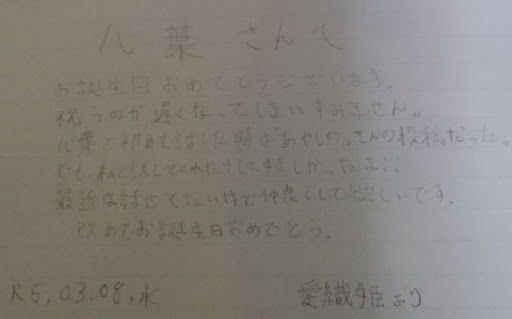 八葉さんへ
お誕生日おめでとうございます。
祝うのが遅くなってしまいすみません。
八葉と初めて話した時は「あやしの」さんの投稿だった。
でも、私と話してくれたりして嬉しかったよ!!
最近は話せてないけど仲良くして欲しいです。
改めてお誕生日おめでとう。
R5,03.08,水
愛織姫より